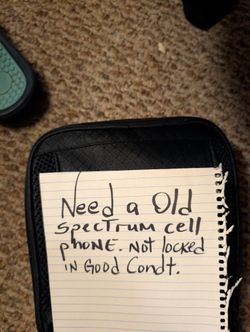 Need a Old
spectrum cell
phone. Not locked
in Good Condt.